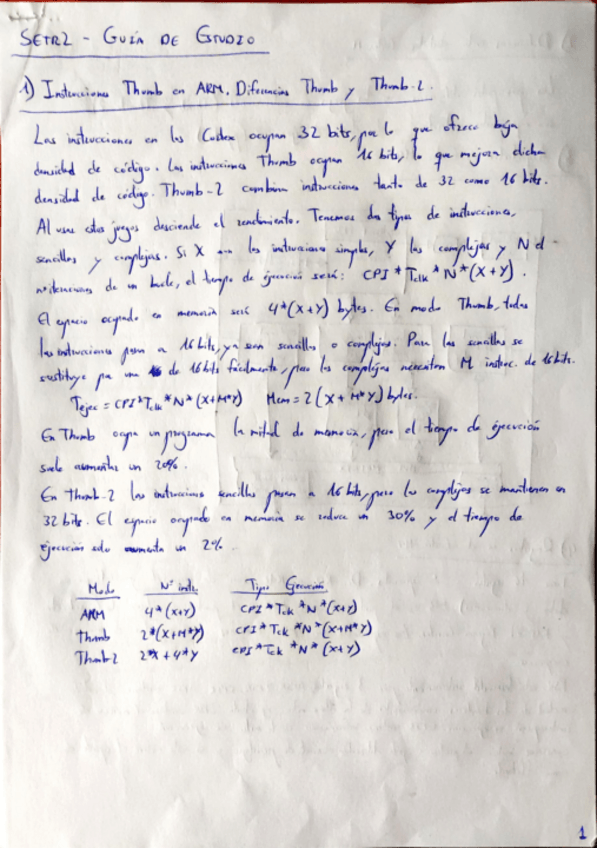 SETR2 - GUÍA DE ESTUDIO
1) Instrucciones Thumb en ARM. Diferencias Thumb y Thumb-2.
Las instrucciones en los Cortex ocupan 32 bits, por lo que ofrece baja
densidad de código. Las instrucciones Thumb ocupan 16 bits, lo que mejora dicha
densidad de código. Thumb-2 combina instrucciones tanto de 32 como 16 bits.
Al usar estos juegos desciende el rendimiento. Tenemos dos tipos de instrucciones,
sencillas y complejas. Si X son las instrucciones simples, Y las complejas y N el
nº iteraciones de un bucle, el tiempo de ejecución será: CPI * Tclk * N * (X+Y).
El espacio ocupado en memoria será 4*(X+Y) bytes. En modo Thumb, todas
las instrucciones pasan a 16 bits, ya sean sencillas o complejas. Para las sencillas se
sustituye por una de 16 bits fácilmente, pero las complejas necesitan M instruc. de 16 bits.
Tejec = CPI*Tclk*N*(X+M*Y) Mem = 2(X+M*Y) bytes.
En Thumb ocupa un programa la mitad de memoria, pero el tiempo de ejecución
suele aumentar un 20%.
En Thumb-2 las instrucciones sencillas pasan a 16 bits, pero las complejas se mantienen en
32 bits. El espacio ocupado en memoria se reduce un 30% y el tiempo de
ejecución solo aumenta un 2%.
Modo Nº instr. Tipo Ejecución
ARM 4*(X+Y) CPI*Tclk*N*(X+Y)
Thumb 2*(X+M*Y) CPI*Tclk*N*(X+M*Y)
Thumb2 2*X+4*Y CPI*Tclk*N*(X+Y)
1